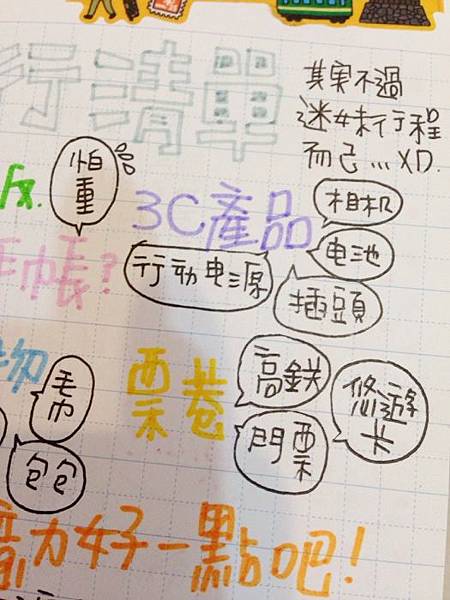 行清單
其实不過
迷妹行程
而已...XD.
怕重
3C產品
相机
电池
行动电源
插頭
手帳?
物
毛巾
包包
票卷
高鉄
門票
悠遊卡
動力好一點吧!